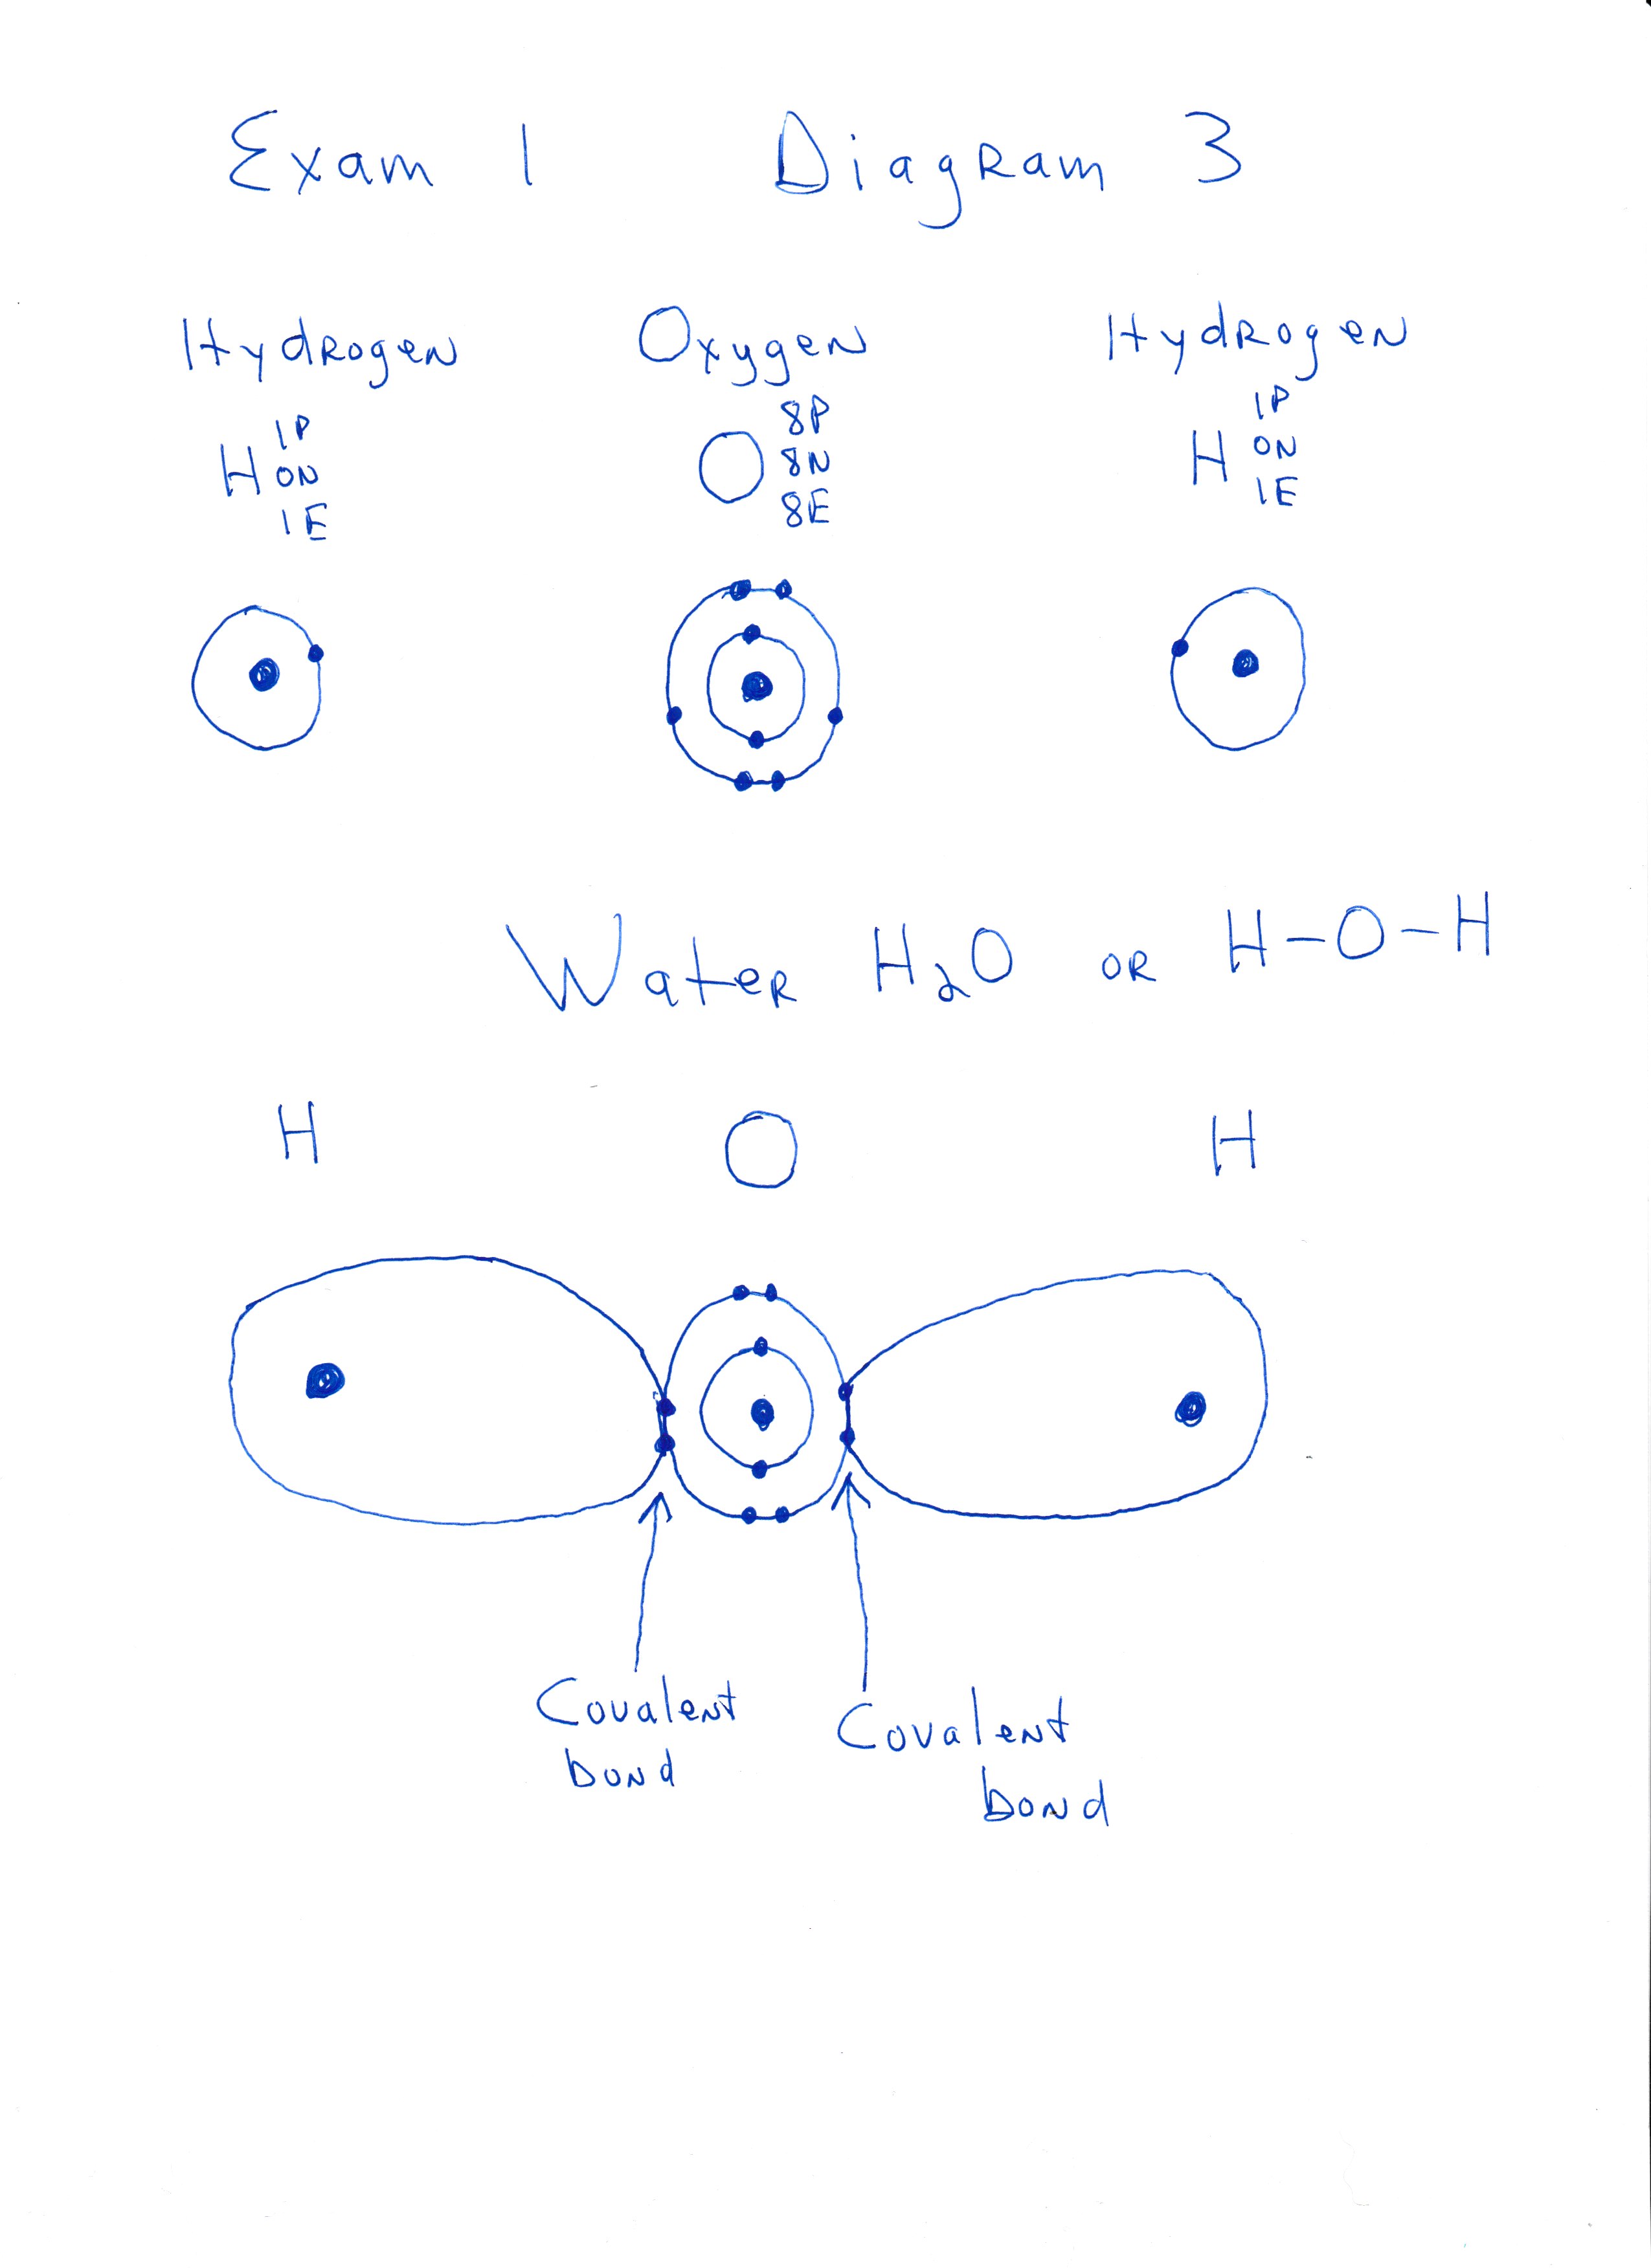 Exam 1 Diagram 3
Hydrogen Oxygen Hydrogen
1P 8P 1P
H 0N O 8N H 0N
1E 8E 1E
Water H₂O or H-O-H
H O H
Covalent Covalent
bond bond